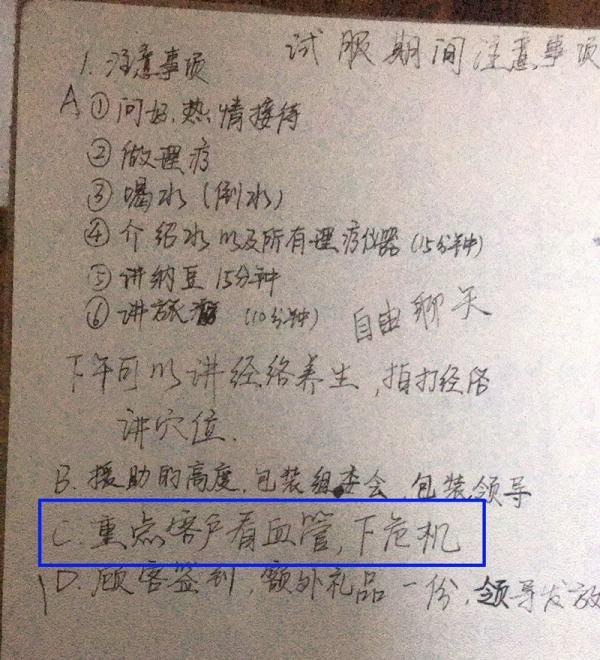 试服期间注意事项
1. 注意事项
A ① 问好.热情接待
② 做理疗
③ 喝水 (倒水)
④ 介绍水以及所有理疗仪器 (15分钟)
⑤ 讲纳豆 15分钟
⑥ 讲旅 (10分钟) 自由聊天
下午可以讲经络养生,拍打经络
讲穴位.
B. 援助的高度,包装组委会,包装领导
C. 重点客户看血管,下危机
D. 顾客签到,额外礼品一份,领导发放